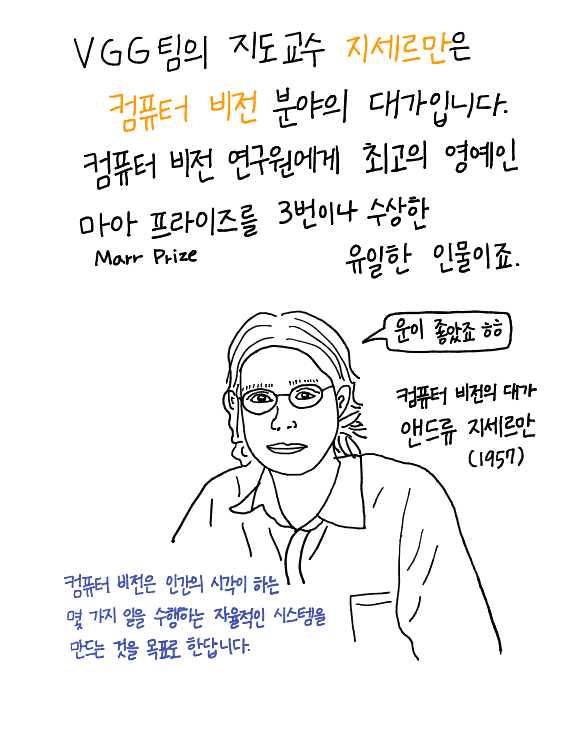 VGG팀의 지도교수 지세르만은
컴퓨터 비전 분야의 대가입니다.
컴퓨터 비전 연구원에게 최고의 영예인
마아 프라이즈를 3번이나 수상한
Marr Prize
유일한 인물이죠.
운이 좋았죠 ㅎㅎ
컴퓨터 비전의 대가
앤드류 지세르만
(1957)
컴퓨터 비전은 인간의 시각이 하는
몇 가지 일을 수행하는 자율적인 시스템을
만드는 것을 목표로 한답니다.